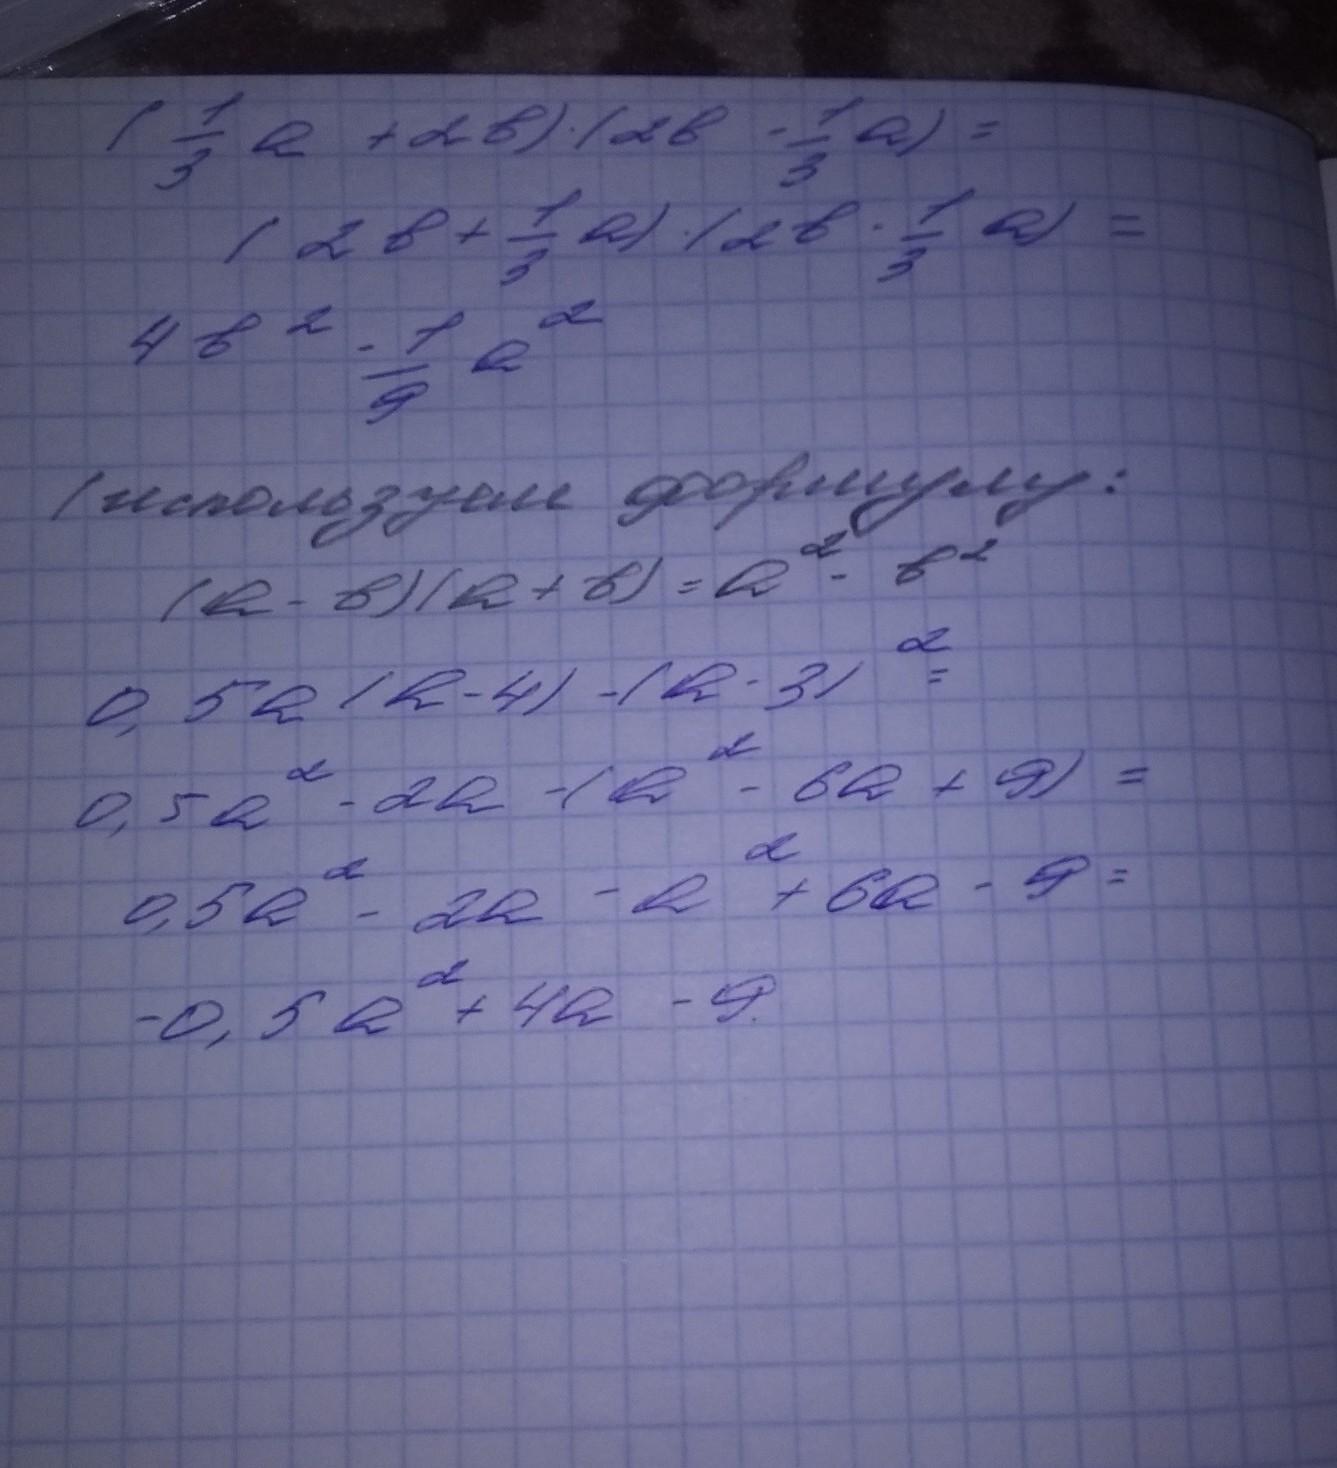 (1/3 a + 2b)·(2b - 1/3 a) =
(2b + 1/3 a)·(2b - 1/3 a) =
4b² - 1/9 a²
(используем формулу:
(a - b)(a + b) = a² - b²
0,5a(a-4) - (a-3)² =
0,5a² - 2a - (a² - 6a + 9) =
0,5a² - 2a - a² + 6a - 9 =
-0,5a² + 4a - 9.